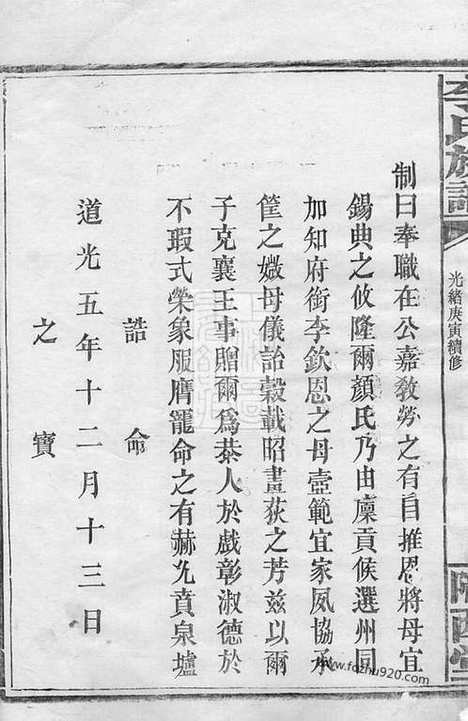 李氏族譜
光緒庚寅續修
隴西堂
制曰奉職在公嘉教勞之有自推恩將母宜
錫典之攸隆爾顏氏乃由廩貢候選州同
加知府銜李欽恩之母壼範宜家夙協承
筐之媺母儀詒穀載昭畫荻之芳茲以爾
子克襄王事贈爾爲恭人於戲彰淑德於
不瑕式榮象服膺寵命之有赫允賁泉壚
誥命
道光五年十二月十三日
之寶
www.fozhu920.com